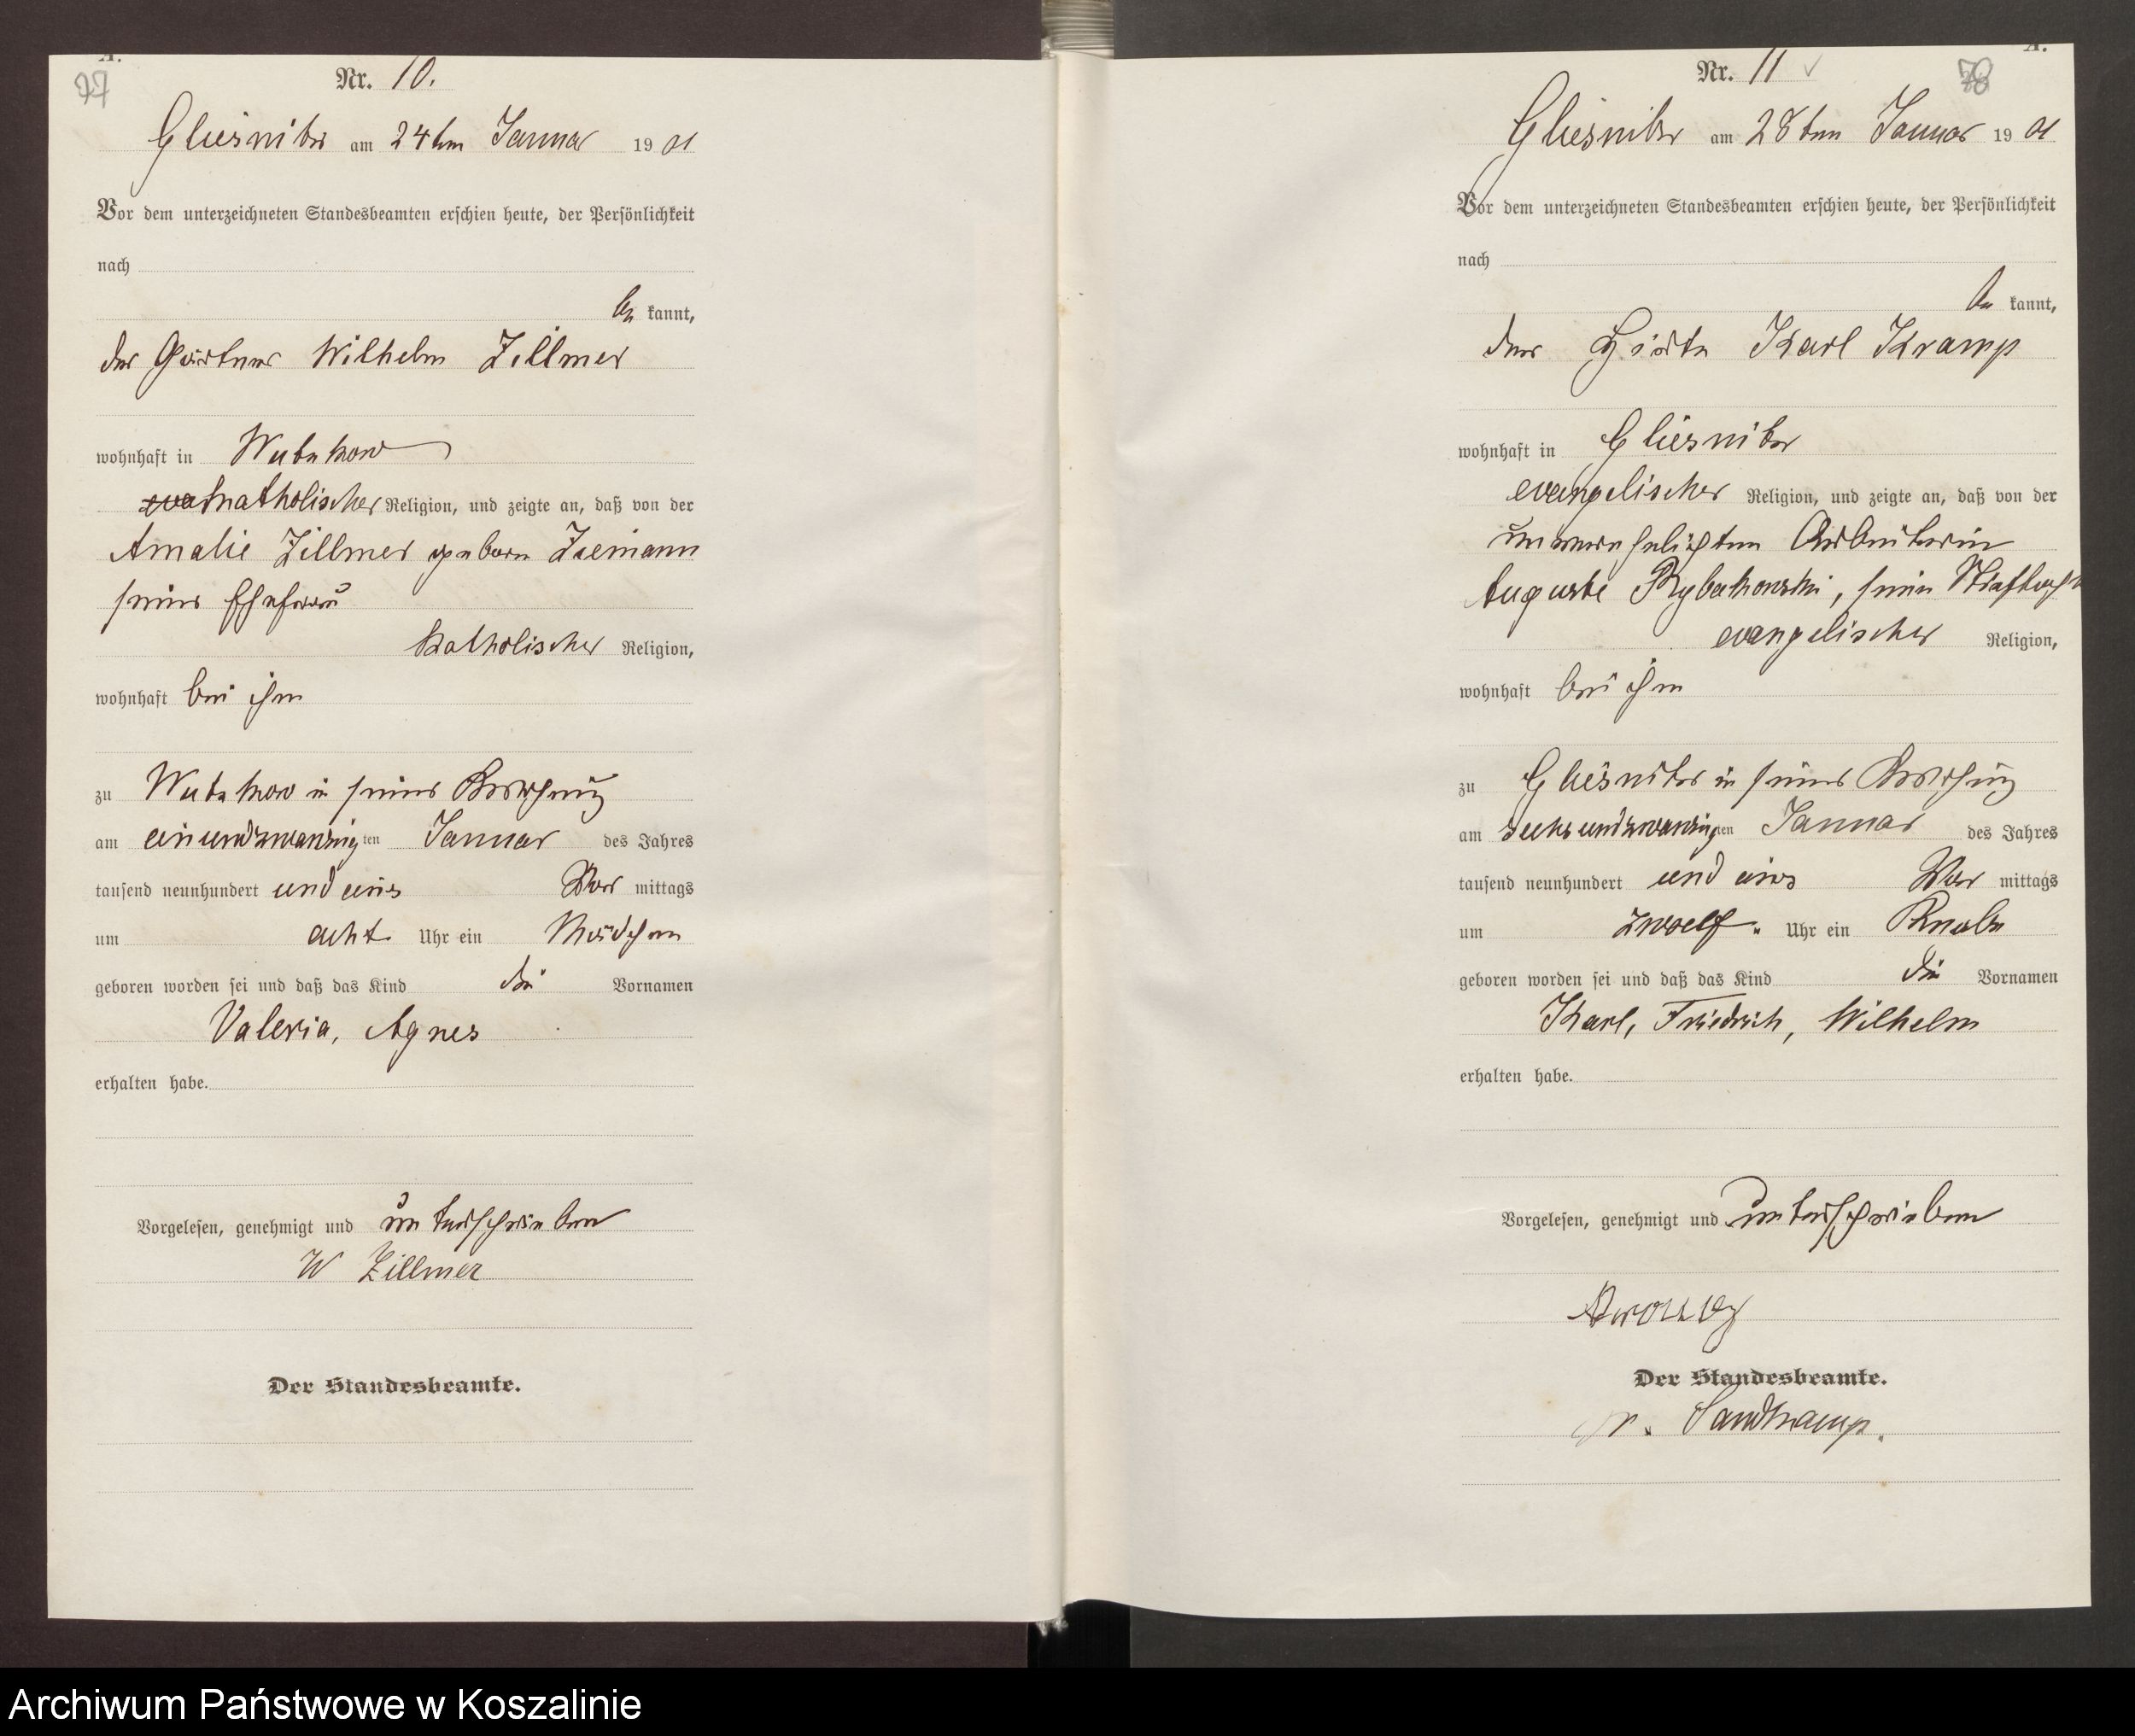 A.
Nr. 10.
Gliesnitz am 24ten Januar 1901
Vor dem unterzeichneten Standesbeamten erschien heute, der Persönlichkeit
nach
be kannt,
der Gärtner Wilhelm Zillmer
wohnhaft in Wutzkow
katholischer Religion, und zeigte an, daß von der
Amalie Zillmer geborn Ziemann
seiner Ehefrau
katholischer Religion,
wohnhaft bei ihm
zu Wutzkow in seiner Behausung
am einundzwanzigten Januar des Jahres
tausend neunhundert und eins Vor mittags
um acht Uhr ein Mädchen
geboren worden sei und daß das Kind die Vornamen
Valeria, Agnes
erhalten habe.
Vorgelesen, genehmigt und unterschrieben
W Zillmer
Der Standesbeamte.
A.
Nr. 11
78
Gliesnitz am 28ten Januar 1901
Vor dem unterzeichneten Standesbeamten erschien heute, der Persönlichkeit
nach
be kannt,
der Hirte Karl Kramp
wohnhaft in Gliesnitz
evangelischer Religion, und zeigte an, daß von der
unverehelichten Arbeiterin
Auguste Rybakowski, seine Stieftochter
evangelischer Religion,
wohnhaft bei ihm
zu Gliesnitz in seiner Behausung
am sechsundzwanzigten Januar des Jahres
tausend neunhundert und eins Vor mittags
um zwoelf Uhr ein Knabe
geboren worden sei und daß das Kind die Vornamen
Karl, Friedrich, Wilhelm
erhalten habe.
Vorgelesen, genehmigt und unterschrieben
Der Standesbeamte.
Sandkamp.
Archiwum Państwowe w Koszalinie